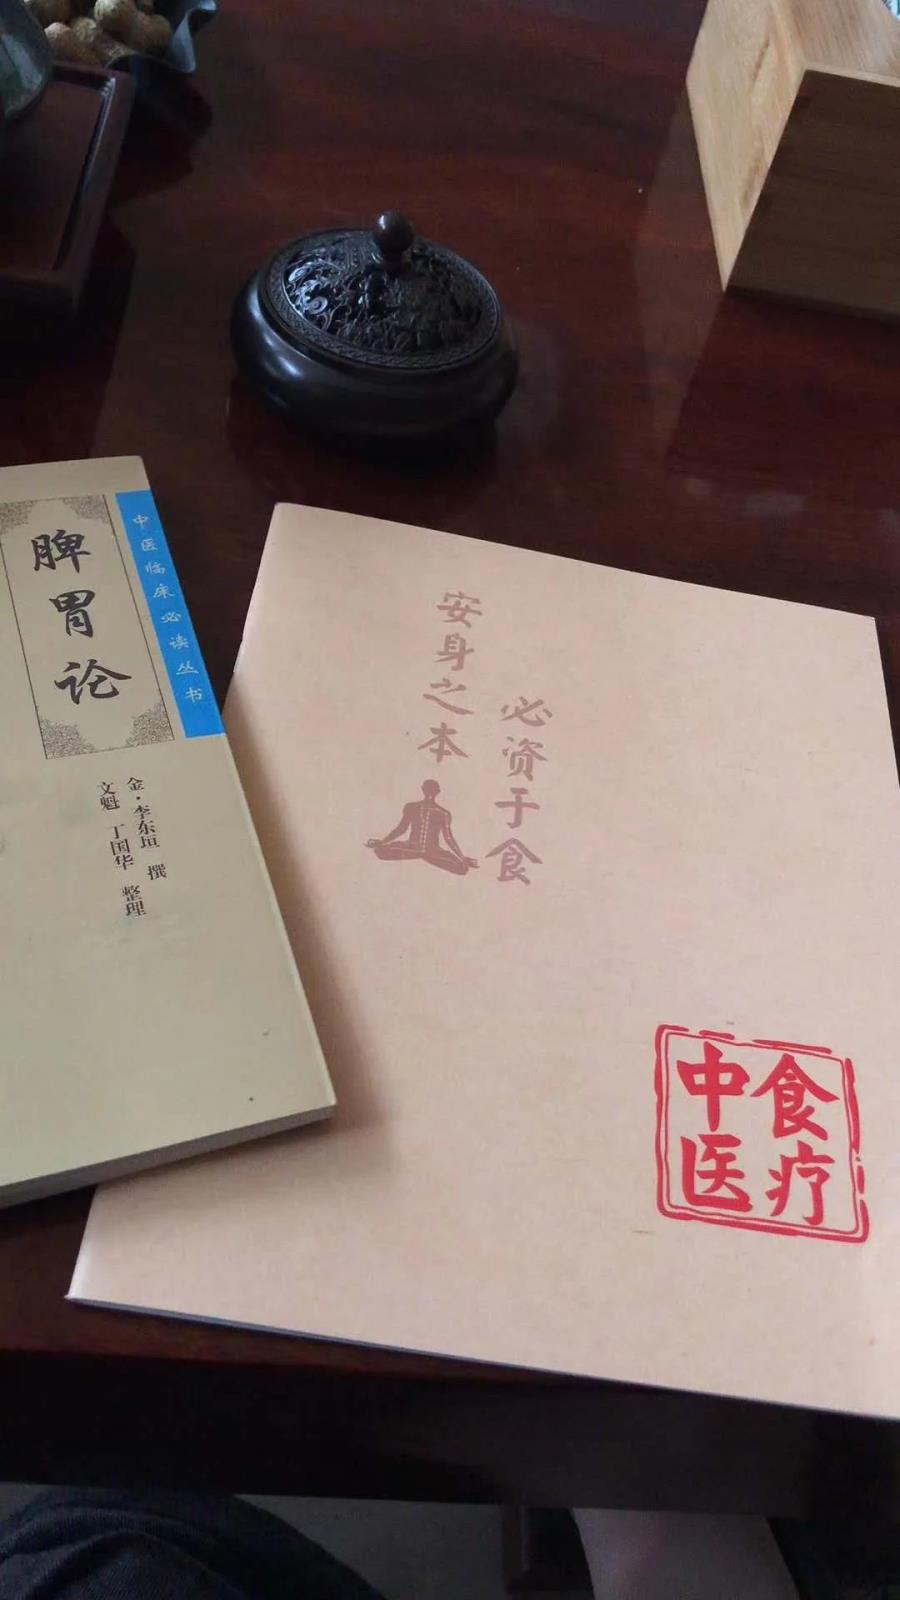 脾胃论
中医临床必读丛书
金·李东垣 撰
文魁 丁国华 整理
安身之本
必资于食
中医
食疗